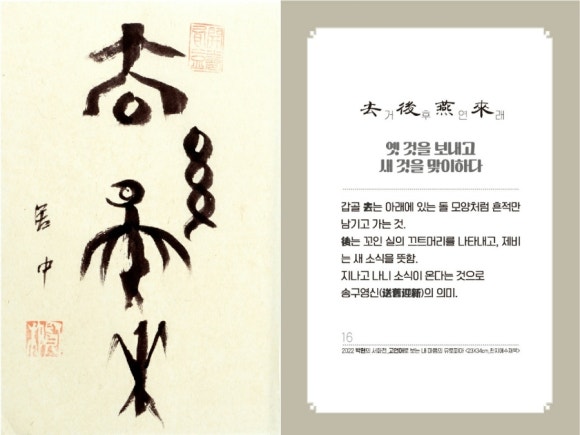 去後燕來
善中
去거後후燕연來래
옛 것을 보내고
새 것을 맞이하다
갑골 去는 아래에 있는 돌 모양처럼 흔적만
남기고 가는 것.
後는 꼬인 실의 끄트머리를 나타내고, 제비
는 새 소식을 뜻함.
지나고 나니 소식이 온다는 것으로
송구영신(送舊迎新)의 의미.
16